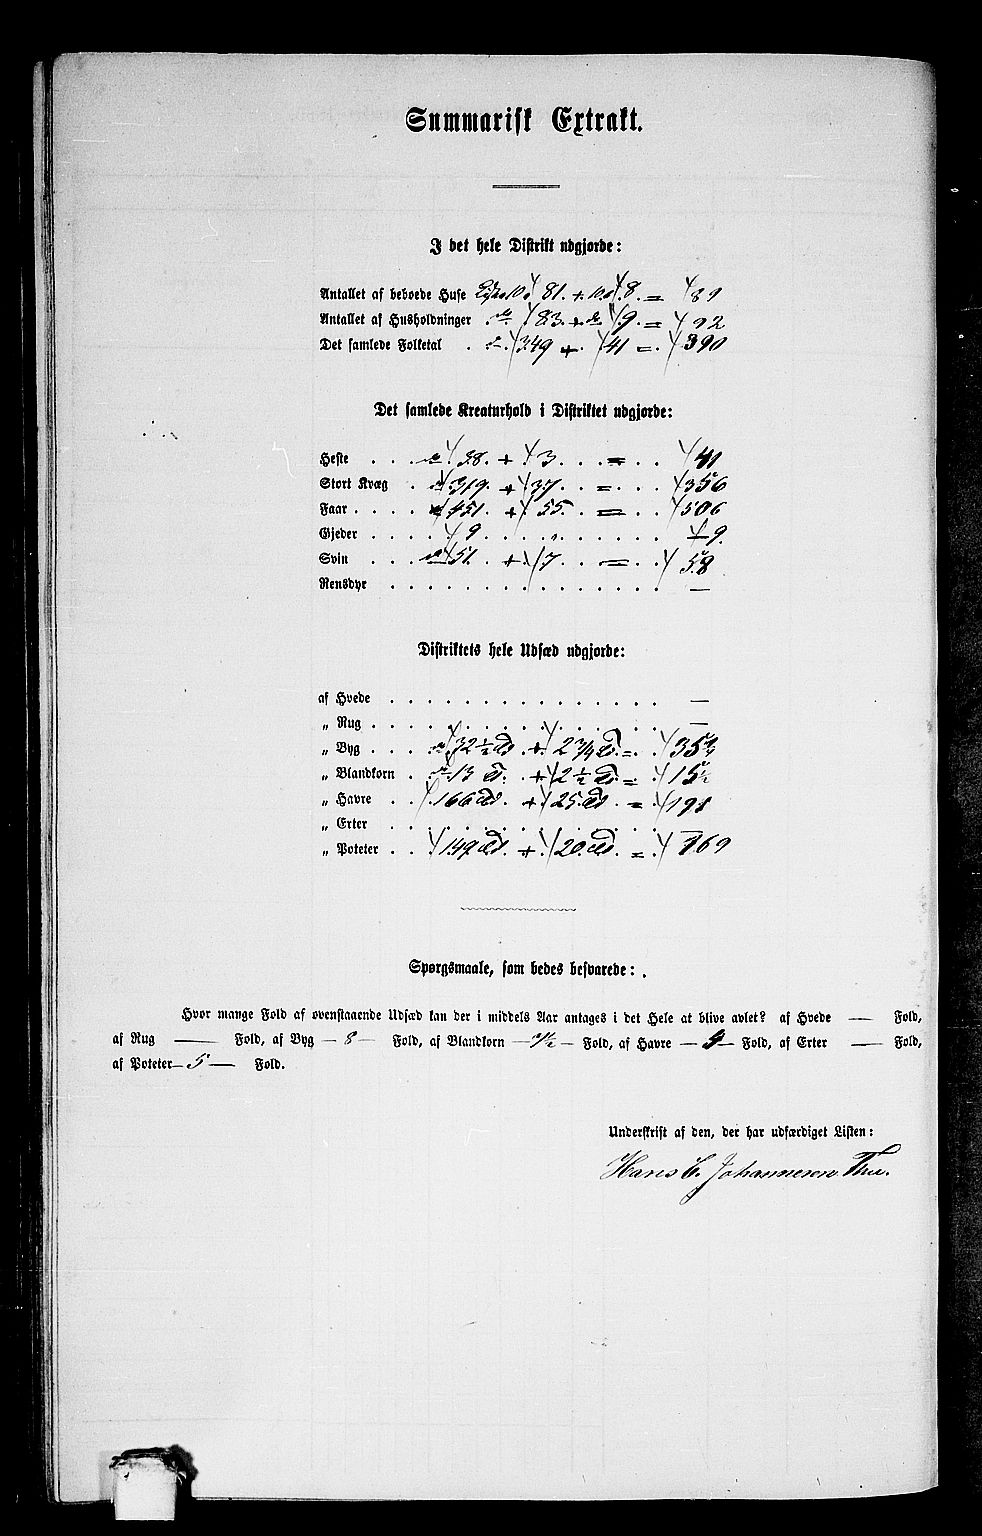 Summarisk Extrakt.
I det hele Distrikt udgjorde:
Antallet af beboede Huse 81. + 8. = 89
Antallet af Husholdninger . do. 83. + do 9. = 92
Det samlede Folketal . 349 + . 41 = . 390
Det samlede Kreaturhold i Distriktet udgjorde:
Heste . . . 38. + 3 . . . = . . 41
Stort Kvæg . 319. + 37. . . = . . . 356
Faar . . . . 451. + 55. . . = . . 506
Gjeder . . . . 9 . . . " . . . . . 9.
Svin . . . 51. + 7. . . = . . 58
Rensdyr . . . . . . . . . . . . . . . —
Distriktets hele Udsæd udgjorde:
af Hvede . . . . . . . . . . . . . . . —
„ Rug . . . . . . . . . . . . . . . —
„ Byg . . . . 32 ½ + 2 3/4 = . 35 1/4
„ Blandkorn . 13 . + 2 ½ = . 15 ½
„ Havre . . 166 . + 25 . = . 191
„ Erter . . . . . . . . . . . . . —
„ Poteter . . 149 . + . 20 . = . 169
Spørgsmaale, som bedes besvarede: .
Hvor mange Fold af ovenstaaende Udsæd kan der i middels Aar antages i det Hele at blive avlet? af Hvede — Fold,
af Rug — Fold, af Byg — 8 — Fold, af Blandkorn — — Fold, af Havre — — Fold, af Erter — Fold,
af Poteter — 5 — Fold.
Underskrift af den, der har udfærdiget Listen:
Hans C. Johannesen Thu.